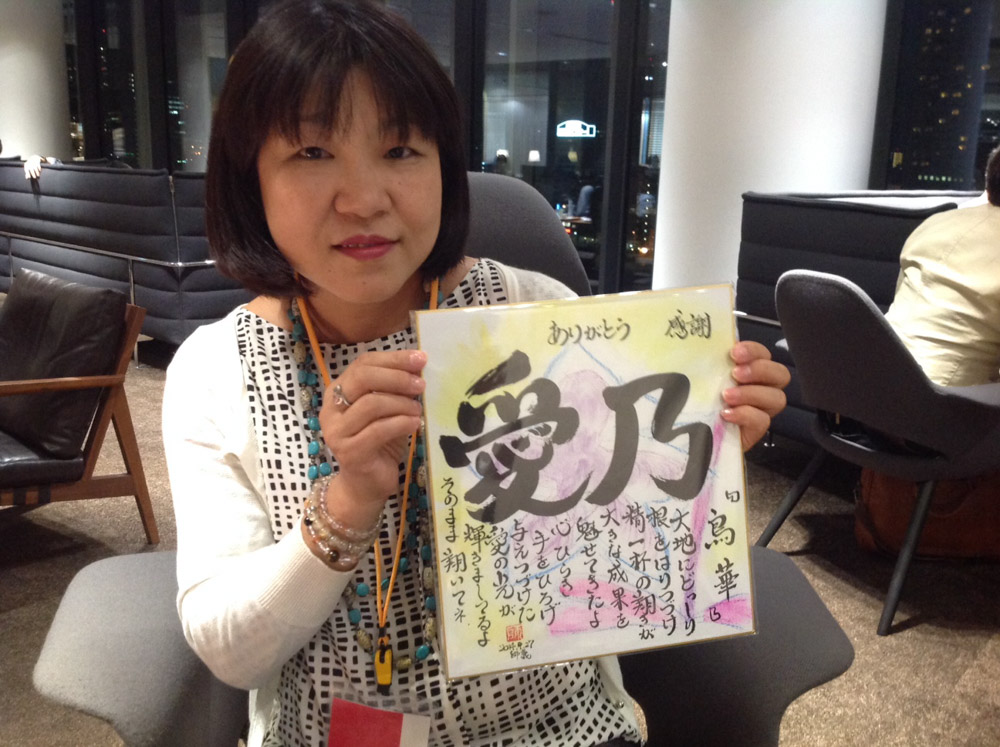 ありがとう 感謝
乃
愛
「鳥華」
大地にどっしり
根をはりつづけ
精一杯の翔きが
大きな成果を
魅せてきたよ
心ひらき
手をひろげ
与えつづけた
愛の光が
輝きましてるよ
そのまま翔いて